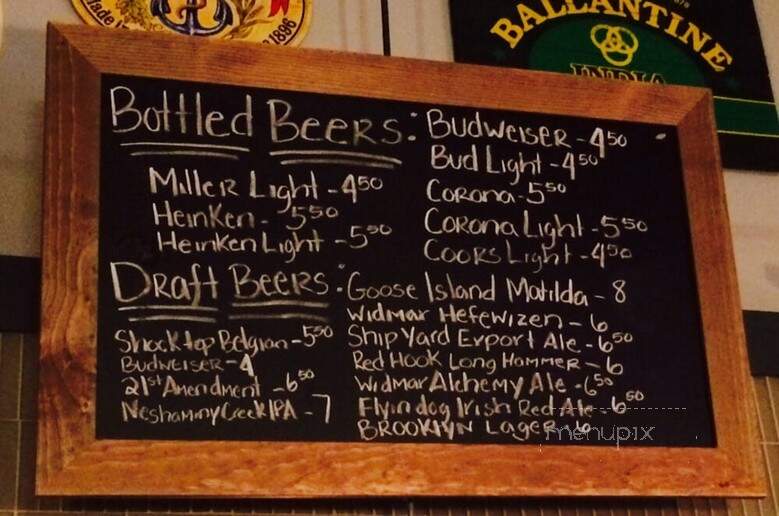 1896
BALLANTINE
INDIA
Bottled Beers:
Miller Light - 4⁵⁰
Heinken - 5⁵⁰
Heinken Light - 5⁵⁰
Budweiser - 4⁵⁰
Bud Light - 4⁵⁰
Corona - 5⁵⁰
Corona Light - 5⁵⁰
Coors Light - 4⁵⁰
Draft Beers:
Shock top Belgian - 5⁵⁰
Budweiser - 4
21st Amendment - 6⁵⁰
Neshaminy Creek IPA - 7
Goose Island Matilda - 8
Widmar Hefewizen - 6
Ship Yard Export Ale - 6⁵⁰
Red Hook Long Hammer - 6
Widmar Alchemy Ale - 6⁵⁰
Flyin dog Irish Red Ale - 6⁵⁰
Brooklyn Lager - 6
menupix